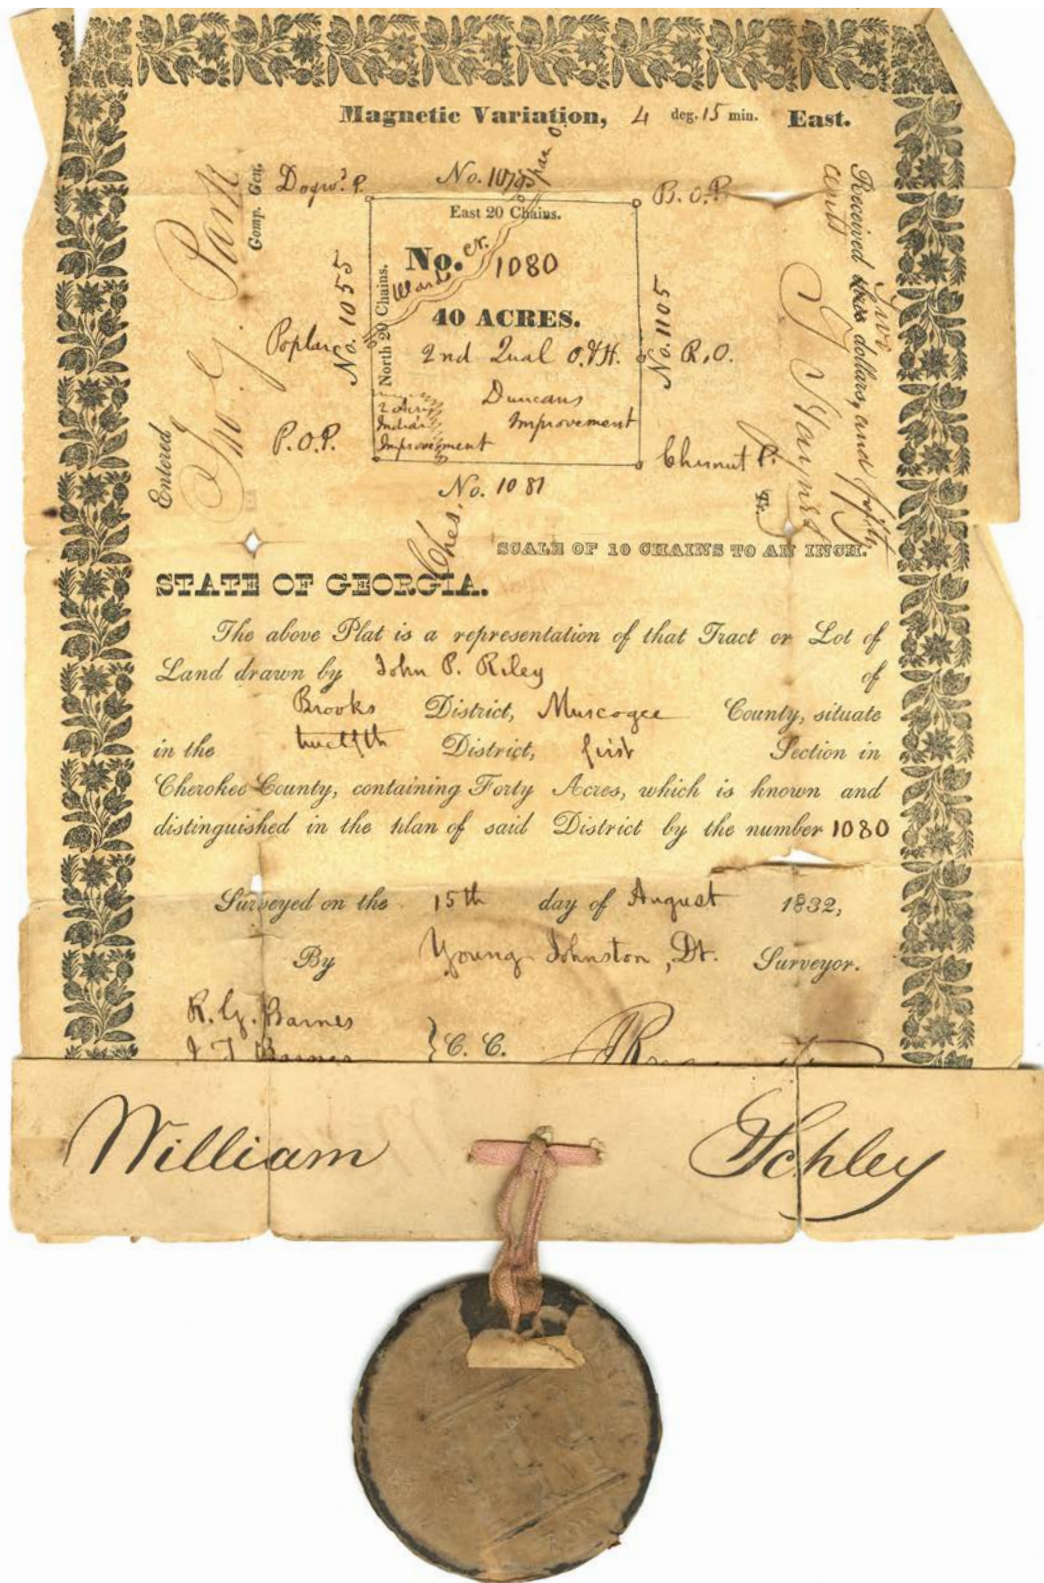 Magnetic Variation, 4 deg. 15 min. East.
Dogwd. P.
No. 1079
B. O. P.
East 20 Chains.
North 20 Chains.
No. 1080
Ward Cr.
40 ACRES.
2nd Qual O. & H.
Duncans
Improvement
2 Acres
Indian
Improvement
No. 1055
Poplar
P.O.P.
No. 1105
R. O.
Chesnut P.
No. 1081
Ches.
Entered
Jno. G. Park
Comp. Gen.
Received three dollars, and fifty
Two
cents
Haynes
Tr.
SCALE OF 10 CHAINS TO AN INCH.
STATE OF GEORGIA.
The above Plat is a representation of that Tract or Lot of
Land drawn by John P. Riley of
Brooks District, Muscogee County, situate
in the twelfth District, first Section in
Cherokee County, containing Forty Acres, which is known and
distinguished in the plan of said District by the number 1080
Surveyed on the 15th day of August 1832,
By Young Johnston, Dt. Surveyor.
R. G. Barnes
Barnes } C. C.
William Schley